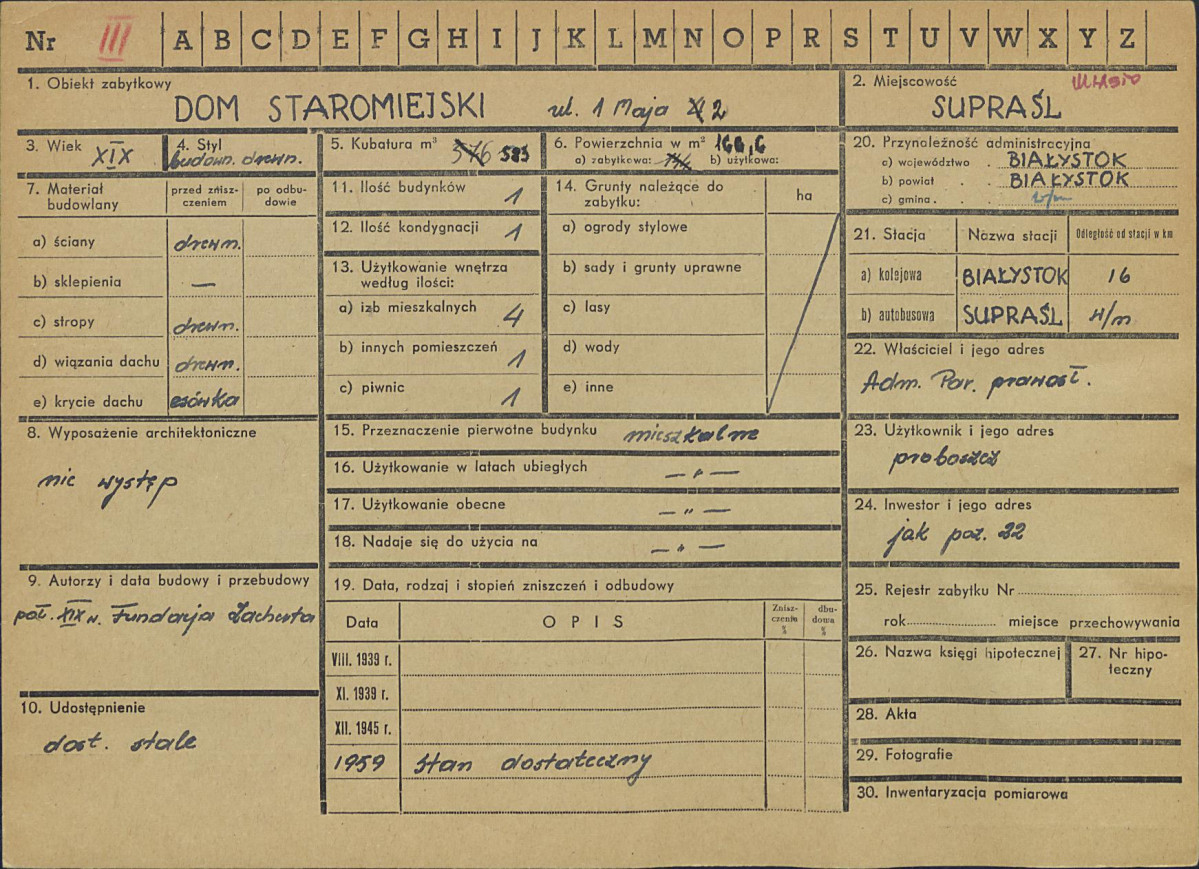 Nr III A B C D E F G H I J K L M N O P R S T U V W X Y Z
1. Obiekt zabytkowy
DOM STAROMIEJSKI ul. 1 Maja 2
2. Miejscowość
SUPRAŚL
3. Wiek XIX
4. Styl
budown. drewn.
5. Kubatura m³ 376 583
6. Powierzchnia w m² 166,6
a) zabytkowa: b) użytkowa:
7. Materiał budowlany
przed znisz-
czeniem
po odbu-
dowie
a) ściany drewn.
b) sklepienia —
c) stropy drewn.
d) wiązania dachu drewn.
e) krycie dachu esówka
8. Wyposażenie architektoniczne
nie występ
9. Autorzy i data budowy i przebudowy
poł. XIX w. Fundacja Zacherta
10. Udostępnienie
dost. stale
11. Ilość budynków 1
12. Ilość kondygnacji 1
13. Użytkowanie wnętrza
według ilości:
a) izb mieszkalnych 4
b) innych pomieszczeń 1
c) piwnic 1
14. Grunty należące do
zabytku:
ha
a) ogrody stylowe
b) sady i grunty uprawne
c) lasy
d) wody
e) inne
15. Przeznaczenie pierwotne budynku mieszkalne
16. Użytkowanie w latach ubiegłych — „ —
17. Użytkowanie obecne — „ —
18. Nadaje się do użycia na — „ —
19. Data, rodzaj i stopień zniszczeń i odbudowy
Data
O P I S
Znisz-
czenia
%
dbu-
dowa
%
VIII. 1939 r.
XI. 1939 r.
XII. 1945 r.
1959 Stan dostateczny
20. Przynależność administracyjna
a) województwo . BIAŁYSTOK
b) powiat . . BIAŁYSTOK
c) gmina . . w/m
21. Stacja
Nazwa stacji
Odległość od stacji w km
a) kolejowa BIAŁYSTOK 16
b) autobusowa SUPRAŚL w/m
22. Właściciel i jego adres
Adm. Par. prawosł.
23. Użytkownik i jego adres
proboszcz
24. Inwestor i jego adres
jak poz. 22
25. Rejestr zabytku Nr
rok miejsce przechowywania
26. Nazwa księgi hipotecznej
27. Nr hipo-
teczny
28. Akta
29. Fotografie
30. Inwentaryzacja pomiarowa